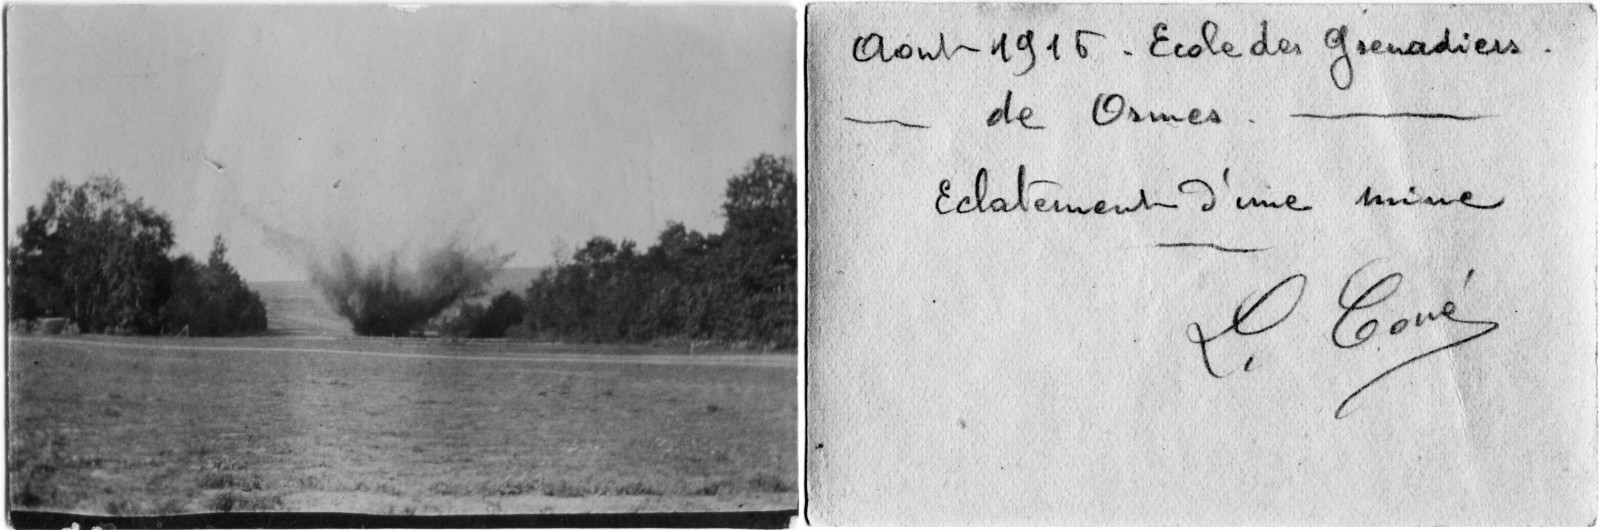 Aout 1915 - Ecole des Grenadiers.
de Osmes.
Eclatement d'une mine
L. Coué